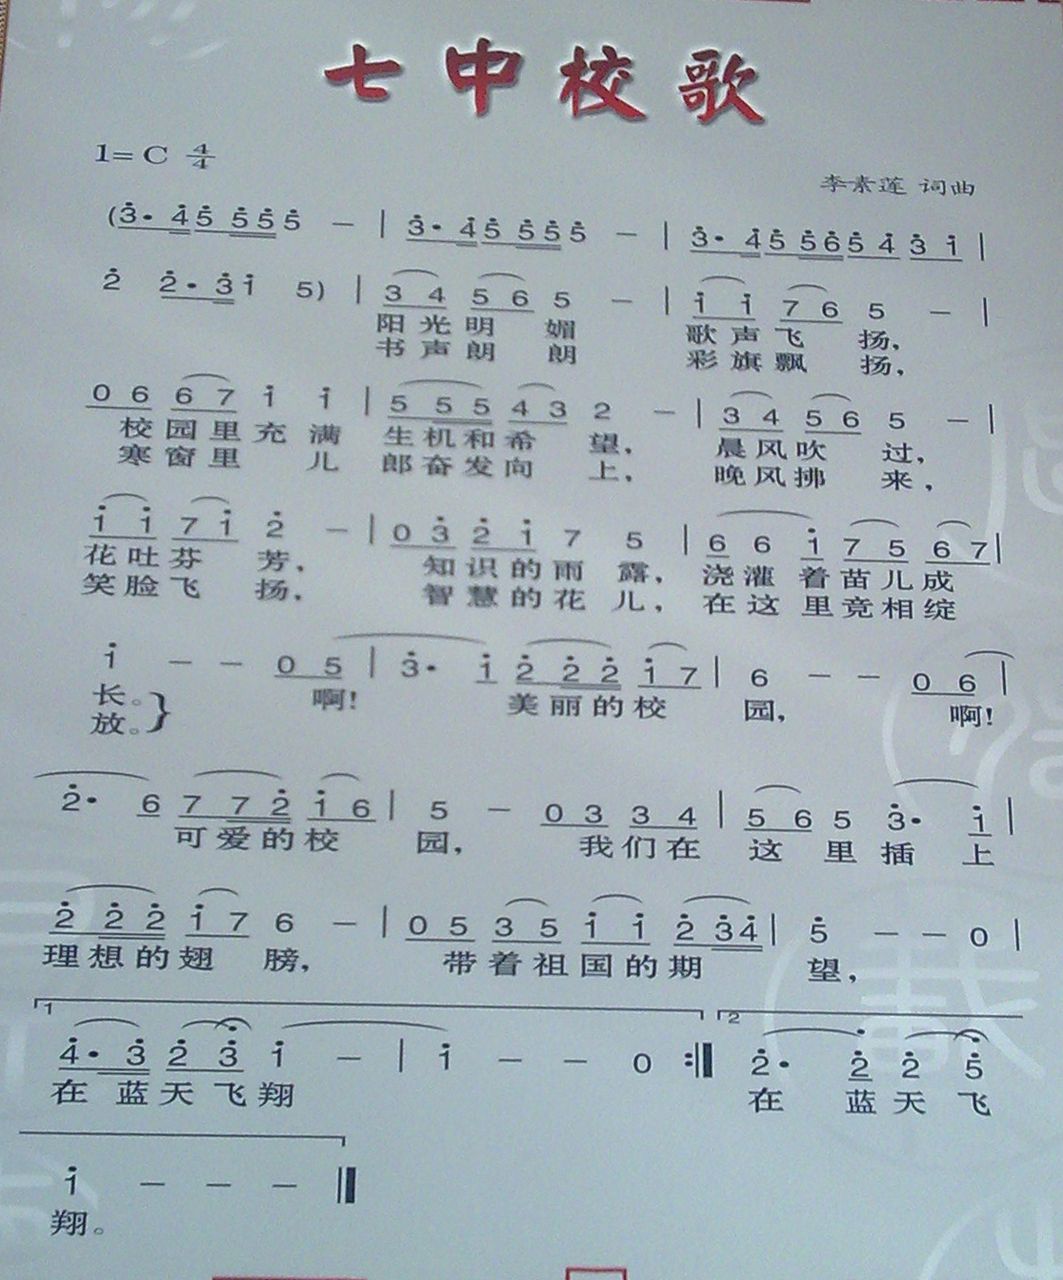 七中校歌
1=C 4/4
李素莲 词曲
(3· 45 555 5 － | 3· 45 555 5 － | 3· 45 565 4 3 1 |
2 2·3 1 5) | 3 4 5 6 5 － | 1 1 7 6 5 － |
阳光明 媚 歌声飞 扬，
书声朗 朗 彩旗飘 扬，
0 6 6 7 1 1 | 5 5 5 4 3 2 － | 3 4 5 6 5 － |
校园里充满 生机和希 望， 晨风吹 过，
寒窗里 儿 郎奋发向 上， 晚风拂 来，
1 1 7 1 2 － | 0 3 2 1 7 5 | 6 6 1 7 5 6 7 |
花吐芬 芳， 知识的雨露，浇灌着苗儿成
笑脸飞 扬， 智慧的花儿，在这里竞相绽
1 － － 0 5 | 3· 1 2 2 2 1 7 | 6 － － 0 6 |
长。 啊！ 美丽的校 园， 啊！
放。}
2· 6 7 7 2 1 6 | 5 － 0 3 3 4 | 5 6 5 3· 1 |
可爱的校 园， 我们在 这里插上
2 2 2 1 7 6 － | 0 5 3 5 1 1 2 3 4 | 5 － － 0 |
理想的翅 膀， 带着祖国的期 望，
1 2
4· 3 2 3 1 － | 1 － － 0 :‖ 2· 2 2 5
在蓝天飞翔 在 蓝天 飞
1 － － － ‖
翔。